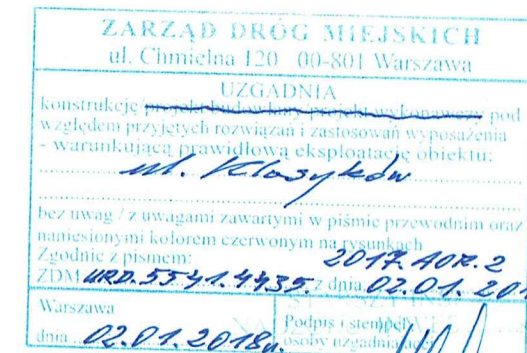 ZARZĄD DRÓG MIEJSKICH
ul. Chmielna 120 00-801 Warszawa
UZGADNIA
konstrukcję projekt budowlany projekt wykonawczy pod
względem przyjętych rozwiązań i zastosowań wyposażenia
- warunkującą prawidłową eksploatację obiektu:
ul. Klasyków
bez uwag / z uwagami zawartymi w piśmie przewodnim oraz
naniesionymi kolorem czerwonym na rysunkach
Zgodnie z pismem: 2017.AOR.2
ZDM URD.5541.4435. z dnia 02.01.201
Warszawa
dnia 02.01.2018r.
Podpis i stempel
osoby uzgadniającej